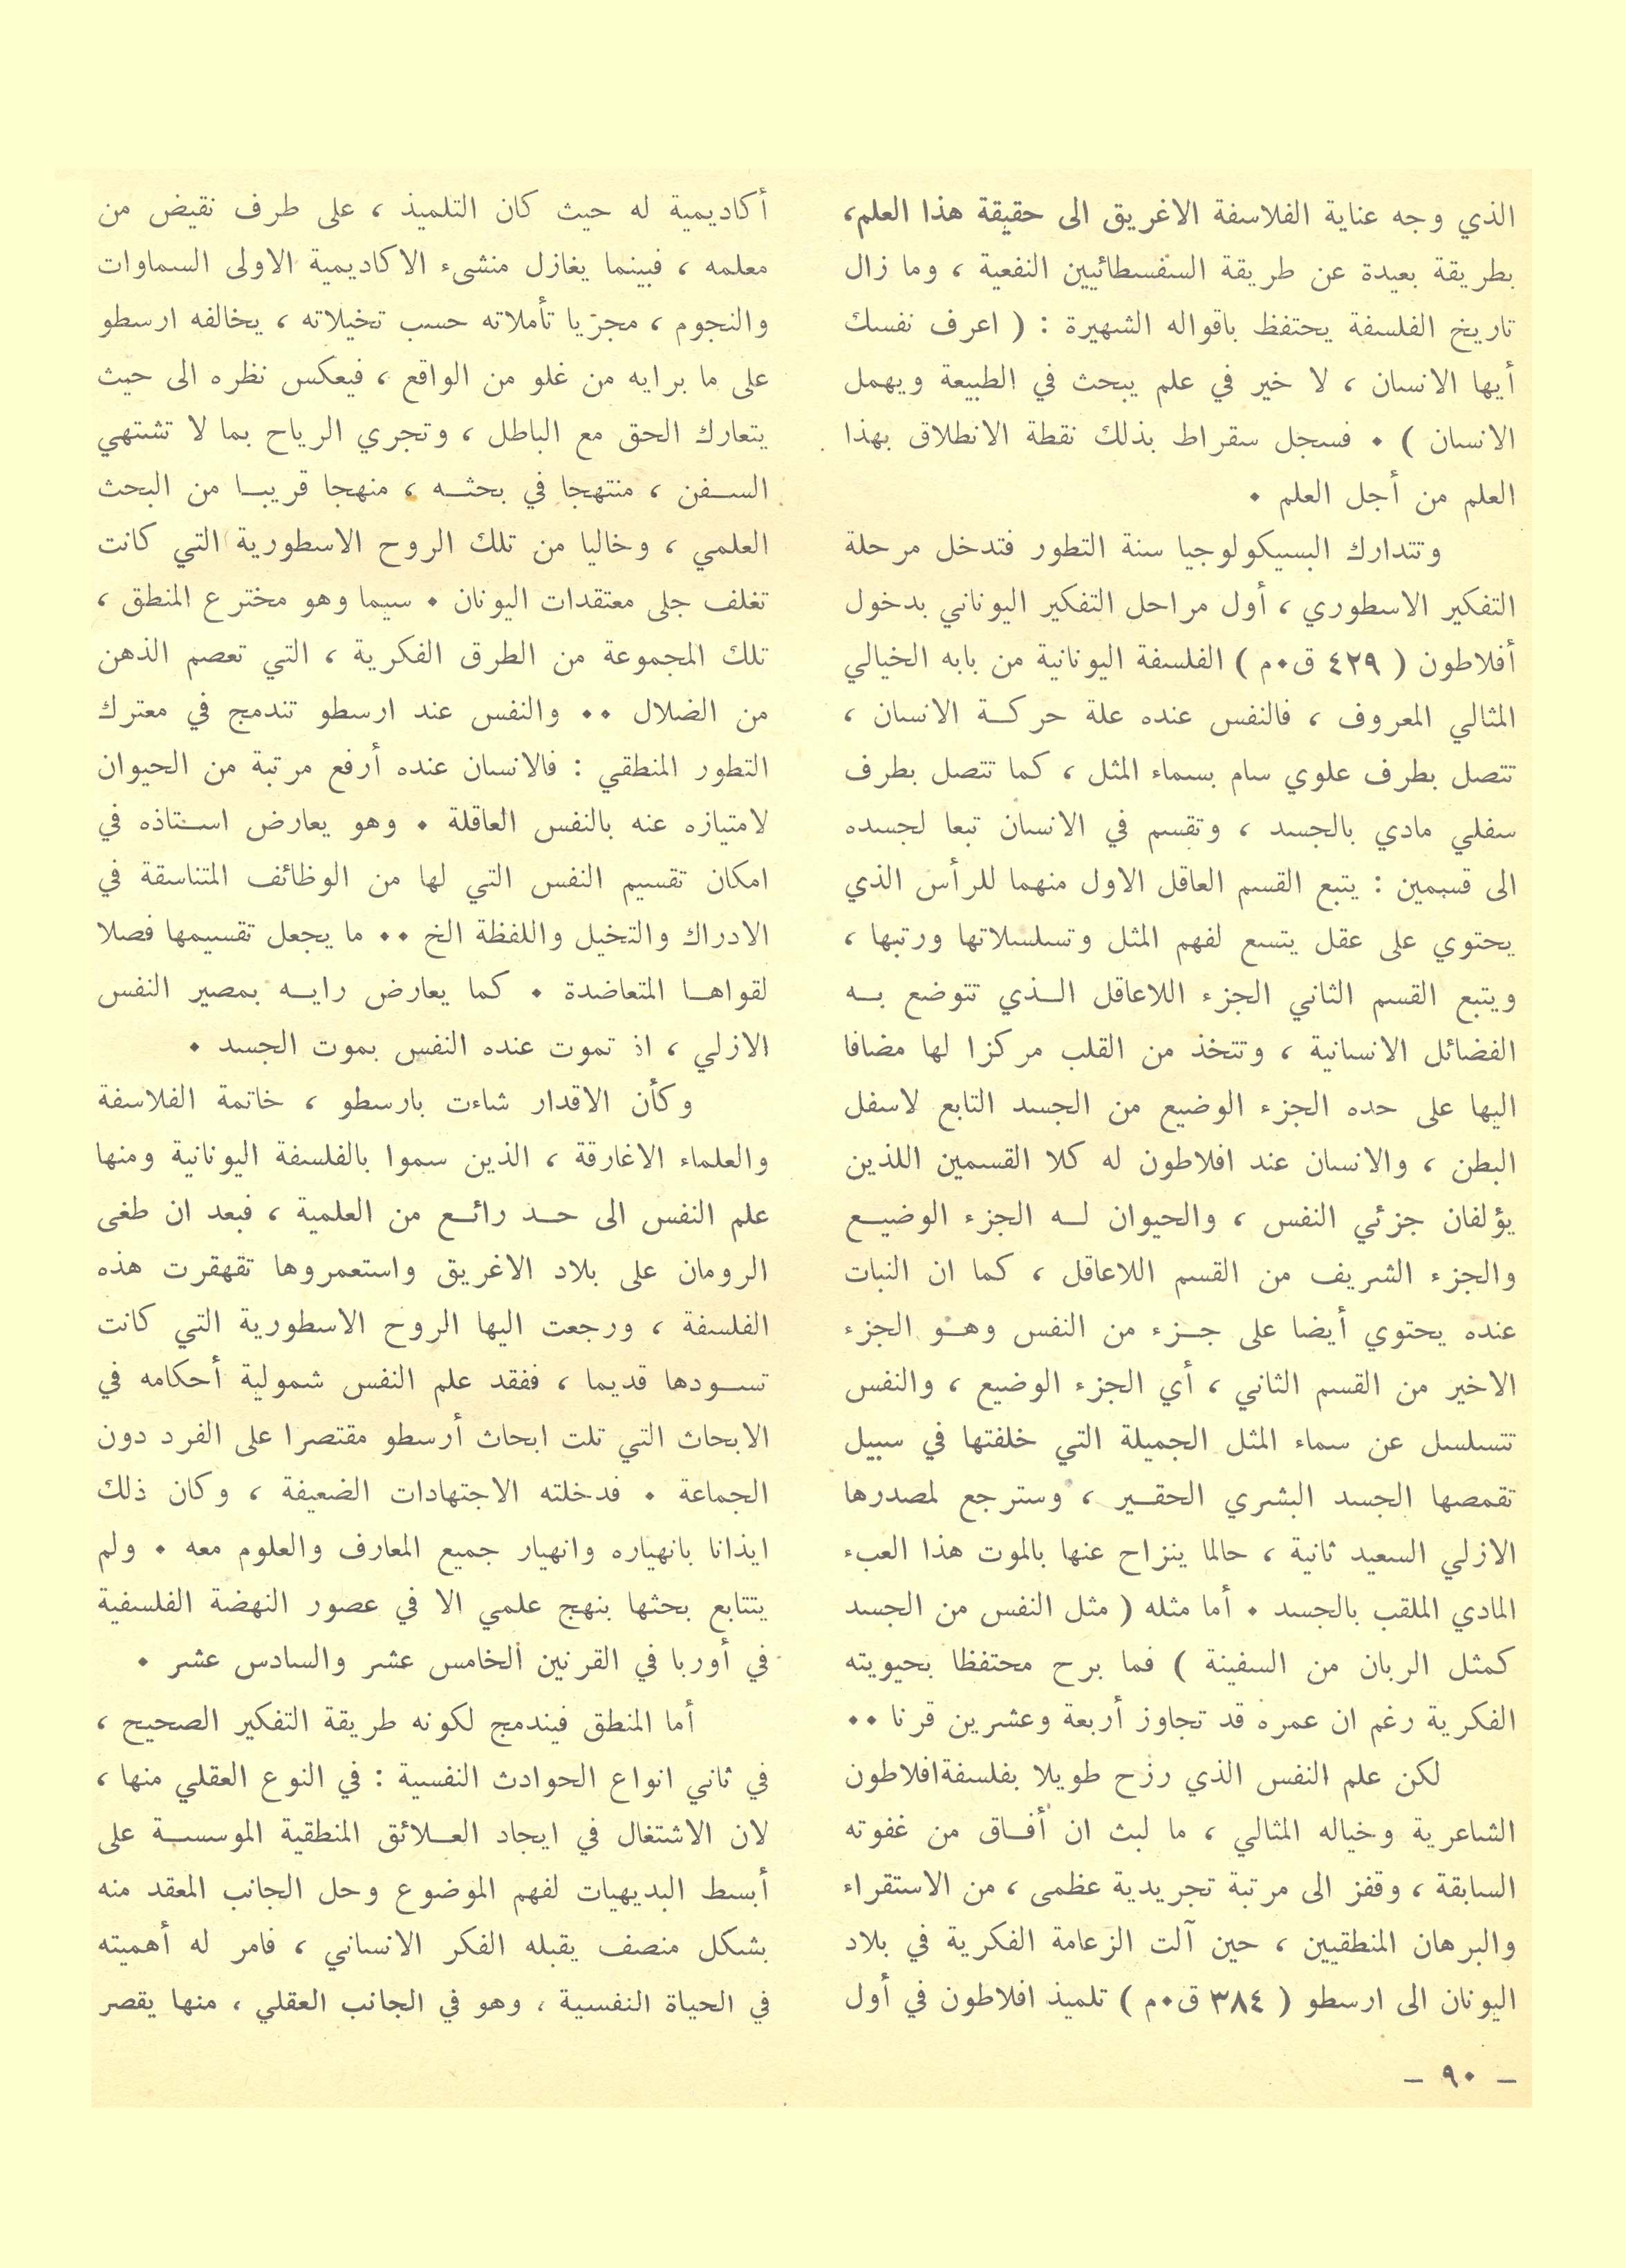 الذي وجه عناية الفلاسفة الاغريق الى حقيقة هذا العلم،
بطريقة بعيدة عن طريقة السفسطائيين النفعية ، وما زال
تاريخ الفلسفة يحتفظ باقواله الشهيرة : ( اعرف نفسك
أيها الانسان ، لا خير في علم يبحث في الطبيعة ويهمل
الانسان ) ٠ فسجل سقراط بذلك نقطة الانطلاق بهذا
العلم من أجل العلم ٠
وتتدارك البسيكولوجيا سنة التطور فتدخل مرحلة
التفكير الاسطوري ، أول مراحل التفكير اليوناني بدخول
أفلاطون ( ٤٢٩ ق٠م ) الفلسفة اليونانية من بابه الخيالي
المثالي المعروف ، فالنفس عنده علة حركـة الانسان ،
تتصل بطرف علوي سام بسماء المثل ، كما تتصل بطرف
سفلي مادي بالجسد ، وتقسم في الانسان تبعا لجسده
الى قسمين : يتبع القسم العاقل الاول منهما للرأس الذي
يحتوي على عقل يتسع لفهم المثل وتسلسلاتها ورتبها ،
ويتبع القسم الثاني الجزء اللاعاقل الـذي تتوضع بـه
الفضائل الانسانية ، وتتخذ من القلب مركزا لها مضافا
اليها على حده الجزء الوضيع من الجسد التابع لاسفل
البطن ، والانسان عند افلاطون له كلا القسمين اللذين
يؤلفان جزئي النفس ، والحيوان لـه الجزء الوضيـع
والجزء الشريف من القسم اللاعاقل ، كما ان النبات
عنده يحتوي أيضا على جـزء من النفس وهـو الجزء
الاخير من القسم الثاني ، أي الجزء الوضيع ، والنفس
تتسلسل عن سماء المثل الجميلة التي خلفتها في سبيل
تقمصها الجسد البشري الحقـير ، وسترجع لمصدرها
الازلي السعيد ثانية ، حالما ينزاح عنها بالموت هذا العبء
المادي الملقب بالجسد ٠ أما مثله ( مثل النفس من الجسد
كمثل الربان من السفينة ) فما برح محتفظا بحيويته
الفكرية رغم ان عمره قد تجاوز أربعة وعشرين قرنا ٠٠
لكن علم النفس الذي رزح طويلا بفلسفة افلاطون
الشاعرية وخياله المثالي ، ما لبث ان أفـاق من غفوته
السابقة ، وقفز الى مرتبة تجريدية عظمى ، من الاستقراء
والبرهان المنطقيين ، حين آلت الزعامة الفكرية في بلاد
اليونان الى ارسطو ( ٣٨٤ ق٠م ) تلميذ افلاطون في أول
أكاديمية له حيث كان التلميذ ، على طرف نقيض من
معلمه ، فبينما يغازل منشىء الاكاديمية الاولى السماوات
والنجوم ، مجرّيا تأملاته حسب تخيلاته ، يخالفه ارسطو
على ما برايه من غلو من الواقع ، فيعكس نظره الى حيث
يتعارك الحق مع الباطل ، وتجري الرياح بما لا تشتهي
السـفن ، منتهجا في بحثـه ، منهجا قريبـا من البحث
العلمي ، وخاليا من تلك الروح الاسطورية التي كانت
تغلف جلى معتقدات اليونان ٠ سيما وهو مخترع المنطق ،
تلك المجموعة من الطرق الفكرية ، التي تعصم الذهن
من الضلال ٠٠ والنفس عند ارسطو تندمج في معترك
التطور المنطقي : فالانسان عنده أرفع مرتبة من الحيوان
لامتيازه عنه بالنفس العاقلة ٠ وهو يعارض اسـتاذه في
امكان تقسيم النفس التي لها من الوظائف المتناسقة في
الادراك والتخيل واللفظة الخ ٠٠ ما يجعل تقسيمها فصلا
لقواهـا المتعاضدة ٠ كما يعارض رايـه بمصير النفس
الازلي ، اذ تموت عنده النفس بموت الجسد ٠
وكأن الاقدار شاءت بارسطو ، خاتمة الفلاسفة
والعلماء الاغارقة ، الذين سموا بالفلسفة اليونانية ومنها
علم النفس الى حـد رائـع من العلمية ، فبعد ان طغى
الرومان على بلاد الاغريق واستعمروها تقهقرت هذه
الفلسفة ، ورجعت اليها الروح الاسطورية التي كانت
تسـودها قديما ، ففقد علم النفس شمولية أحكامه في
الابحاث التي تلت ابحاث أرسطو مقتصرا على الفرد دون
الجماعة ٠ فدخلته الاجتهادات الضعيفة ، وكان ذلك
ايذانا بانهياره وانهيار جميع المعارف والعلوم معه ٠ ولم
يتتابع بحثها بنهج علمي الا في عصور النهضة الفلسفية
في أوربا في القرنين الخامس عشر والسادس عشر ٠
أما المنطق فيندمج لكونه طريقة التفكير الصحيح ،
في ثاني انواع الحوادث النفسية : في النوع العقلي منها ،
لان الاشتغال في ايجاد العـلائق المنطقية الموسسـة على
أبسط البديهيات لفهم الموضوع وحل الجانب المعقد منه
بشكل منصف يقبله الفكر الانساني ، فامر له أهميته
في الحياة النفسية ، وهو في الجانب العقلي ، منها يقصر
– ٩٠ –